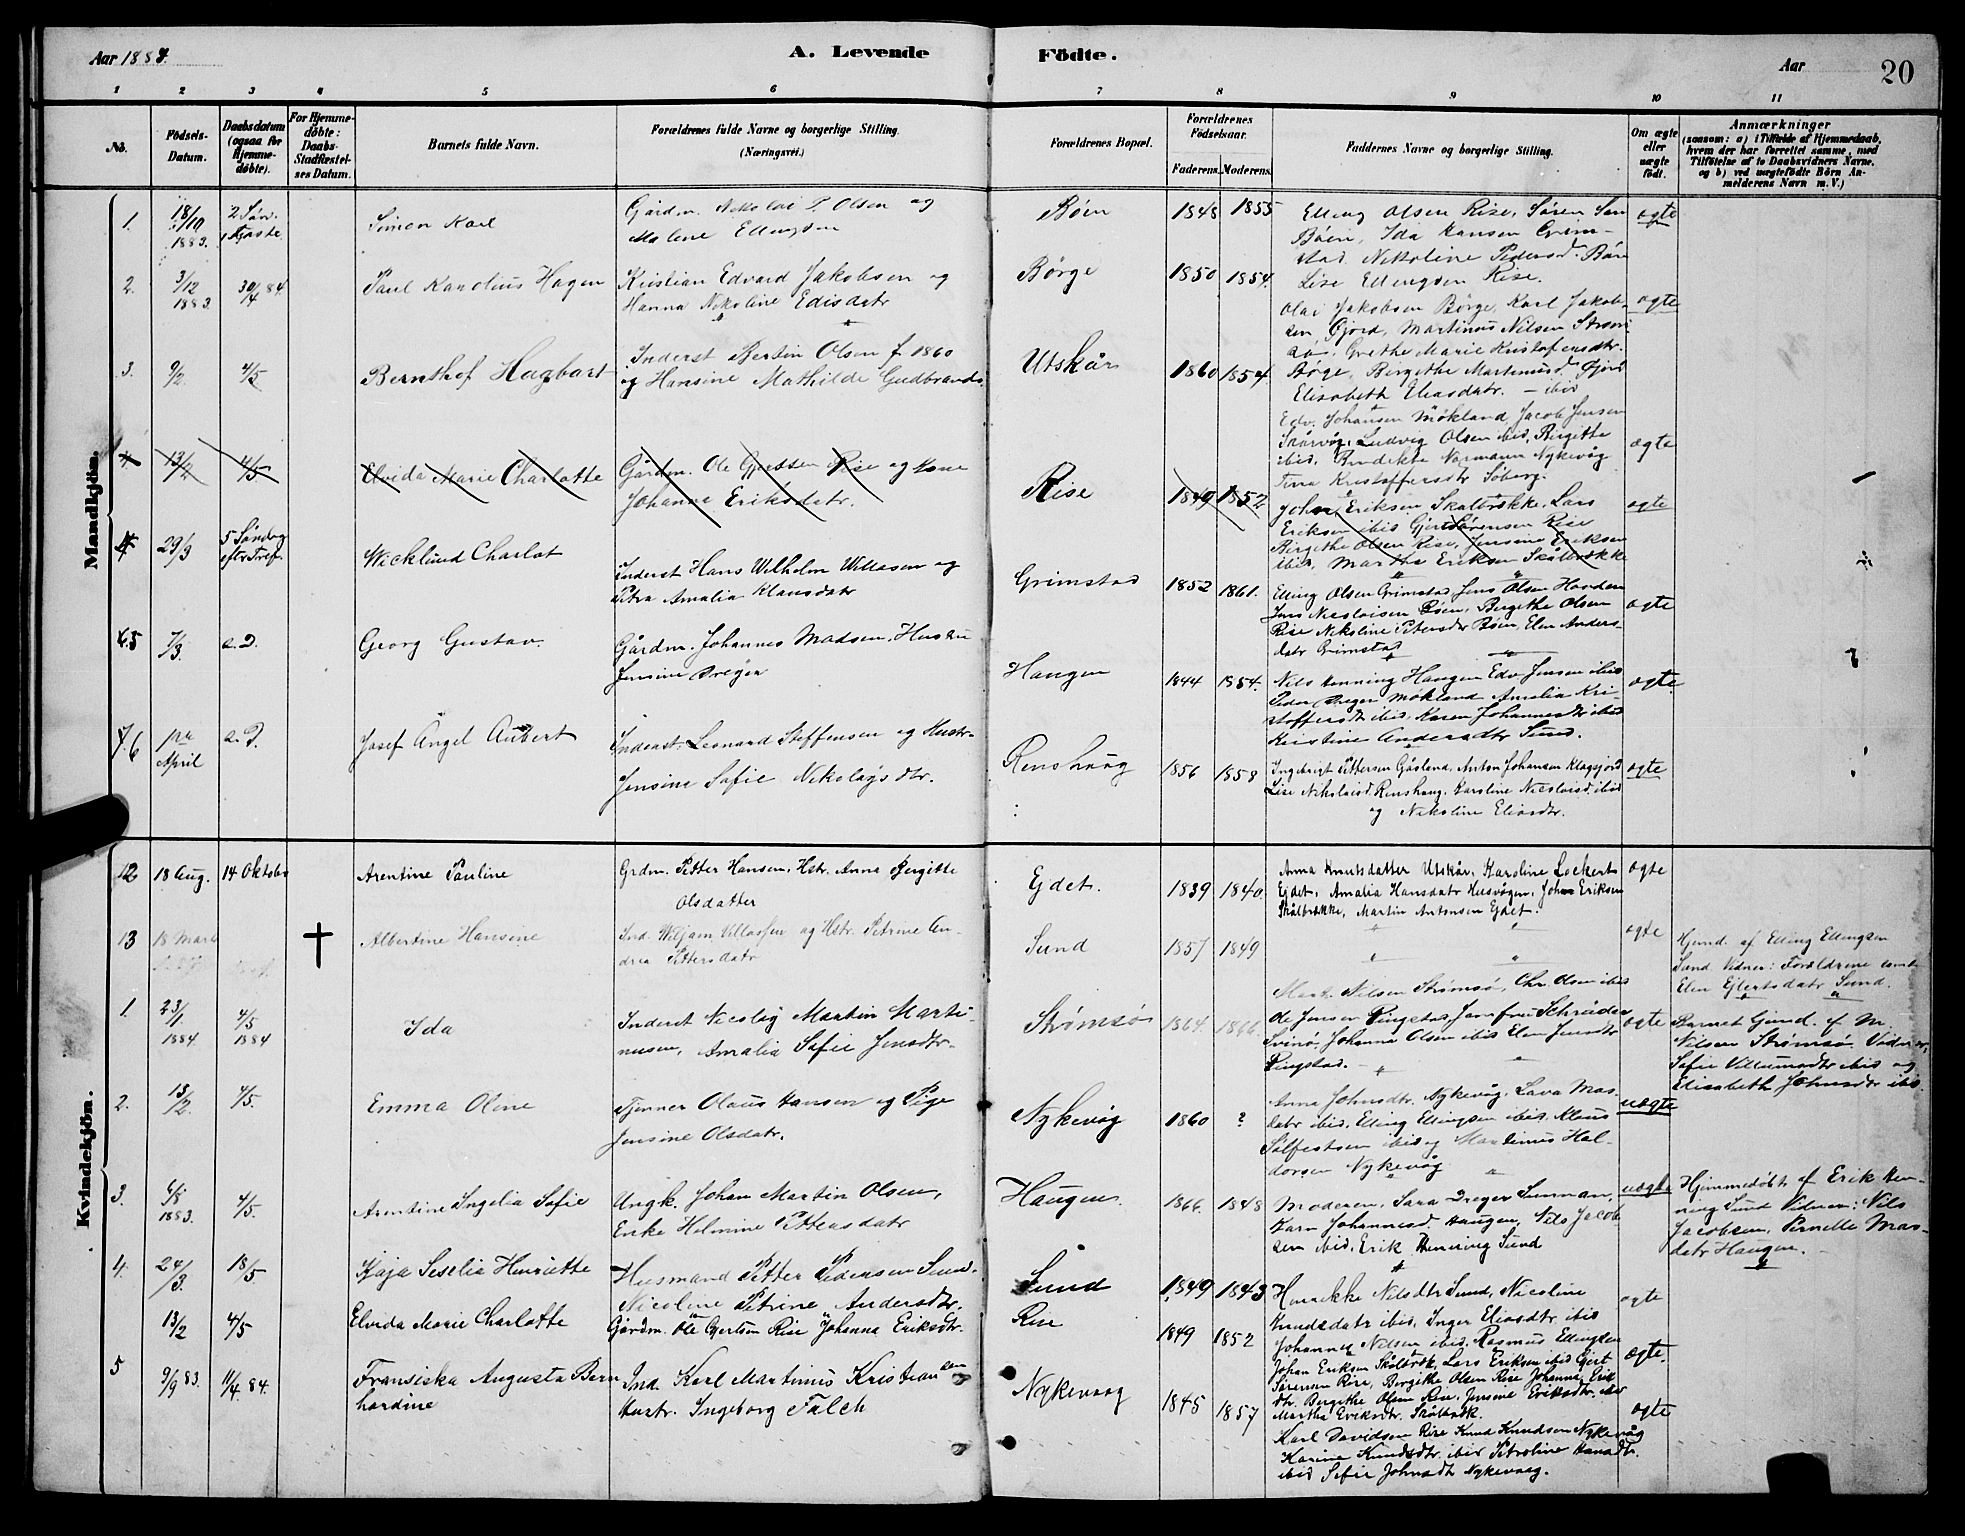 Aar 1884.
A. Levende Födte.
Aar
20
1 2 3 4 5 6 7 8 9 10 11
No.
Födsels-Datum.
Daabsdatum (ogsaa for Hjemme-döbte).
For Hjemme-döbte: Daabs-Stadfæstel-ses Datum.
Barnets fulde Navn.
Forældrenes fulde Navne og borgerlige Stilling.
(Næringsvei.)
Forældrenes Bopæl.
Forældrenes Födselsaar.
Faderens. Moderens.
Faddernes Navne og borgerlige Stilling.
Om ægte eller uægte födt.
Anmærkninger
(saasom: a) i Tilfælde af Hjemmedaab, hvem der har forrettet samme, med Tilföielse af to Daabsvidners Navne, og b) ved uægtefödte Börn Anmelderens Navn m. V.)
Mandkjön.
1. 18/10 1883. 2 Søn. Simon Karl
Gårdm. Nikolai P. Olsen og
Malene Ellingsen
Bøen 1848 1855
Elling Olsen Rise, Søren
Bøen, Ida Hansen Grim-
stad Nikoline Pedersd. Bøen
Lise Ellingsen Rise.
ægte
2. 3/12 1883. 30/4 84. Paul Karolius Hagen
Kristian Edvard Jakobsen og
Hanna Nikoline Edisdatr
Börge 1850 1854.
Olai Jakobsen Börge, Karl Jakob-
sen Gjörd, Martinus Nilsen
Grethe Marie Kristofersdtr.
Börge, Bergithe
Elisabeth Eliasdatr. — ibid
ægte
3. 9/2. 4/5 Bernthof Hagbart
Inderst Bertin Olsen f 1860
og Hansine Mathilde Gudbrands.
Utskår 1860 1854
Edv. Johansen Mökland, Jacob Jensen
Skårvåg, Ludvig Olsen ibid, Birgitte
ibid, Bendikte Normann Nykevåg
Kristoffersdtr Söberg.
ægte
4. 13/2 4/5 Elvida Marie Charlotte
Gårdm. Ole Gjertsen Rise og kone
Johanna Eriksdatr.
Rise 1849 1852
Johan Eriksen Skålbrekke, Lars
Eriksen ibid Gjert Sørensen Rise
Birgithe Olsen Rise, Jensine Eriksen
ibid, Martha Eriksen Skålbrekke
ægte
4 29/3 5 Søndag efter Tref. Wicklund Charlot
Inderst Hans Wilhelm Willasen og
Petra Amalia Klausdatr
Grimstad 1852 1861.
Elling Olsen Grimstad Jens Olsen Hovden
Jens Nicolaisen Bøen, Bergithe Olsen
Rise Nikoline Petersdtr Bøen Elen Anders-
datr Grimstad
ægte
5 7/3. a.D. Georg Gustav.
Gårdm. Johannes Madsen, Hustru
Jensine Dreyer
Haugen 1844 1854.
Nils Henning Haugen Edv Jensen ibid
Peder Dreyer Mökland Amalia Kri-
stoffersdtr ibid, Karen Johannesdtr ibid
Kristine Andersdtr Sund.
ægte
6 1ste April a.D. Josef Angel Aubert
Inderst. Leonard Steffensen og Hustr.
Jensine Sofie Nikolaysdtr.
Renshaug 1856 1858
Ingebrigt Pettersen Gåsland, Anton Johansen Klagsjord
Lise Nikolaisd. Renshaug, Karoline Nicolaisd. ibid
og Nikoline Eliasdtr.
ægte
Kvindekjön.
12 18 Aug. 14 Oktober Arentine Pauline
Grdm. Petter Hansen, Hstr. Anna Bergitte
Olsdatter
Ejdet. 1839 1840.
Anna Knutsdatter Utskår, Karoline Lockert
Ejdet, Amalia Hansdatr Husvågen, Johan Eriksen
Skålbrekke, Martin Antonsen Ejdet.
ægte
13 18 Marts Albertine Hansine
Ind. Wiljam Villassen og Hstr. Petrine An-
drea Pettersdatr
Sund 1857 1849
ægte
Hjmd. af Elling Ellingsen
Sund. Vidner: Forældrene samt
Elen Ejlertsdatr Sund.
1. 23/1 1884. 4/5 1884 Ida
Inderst Nicolay Martin Marti-
nusen, Amalia Sofie Jensdtr.
Strømsø 1864. 1866.
Mart. Nilsen Strømsø, Chr. Olsen ibid
Ole Jensen Ringstad Jomfru Schrøder
Svinö, Johanna Olsen ibid Elen Jensdtr
Ringstad.
ægte
Barnet hjmd. af M.
Nilsen Strømsø. Vidner,
Sofie Villumsdtr ibid og
Elisabeth Johnsdtr ibid.
2. 13/2 4/5. Emma Oline
Tjener Olaus Hansen og Pige
Jensine Olsdatr.
Nykevåg 1860 ?
Anna Johnsdtr. Nykevåg, Lava Mas-
datr ibid, Elling Ellingsen ibid, Klaus
Sölfestsen ibid og Martinus Hal-
dorsen Nykevåg
uægte
3. 6/8 1883. 4/5. Arentine Ingelia Sofie
Ungk. Johan Martin Olsen,
Enke Helmine Pettersdatr
Haugen. 1866. 1848
Moderen, Sara Dreyer
Karn Johannesd. Haugen, Nils Jacob-
sen ibid, Erik Henning Sund
uægte
Hjemmedöbt af Erik Hen-
ning Sund Vidner: Nils
Jacobsen, Pernelle Mas-
datr Haugen.
4. 24/3. 18/5 Kaja Seselia Henriette
Husmand Petter Pedersen Sund.
Nicoline Petrine Andersdtr.
Sund 1849 1843
Henrikke Nilsdtr Sund, Nicoline
Knudsdatr ibid, Inger Eliasdtr ibid
Johannes Nilsen ibid, Rasmus Ellingsen
ægte
13/2 4/5 Elvida Marie Charlotte
Gårdm. Ole Gjertsen Rise Johanna Eriksdtr.
Rise 1849 1852
Johan Eriksen Skålbrek, Lars Eriksen ibid Gjert
Sørensen Rise, Bergithe Olsen Rise Johanna Erik
dtr. Bergithe Olsen Rise, Jensine Eriksdtr. ibid
Martha Eriksdtr. Skålbrek.
ægte.
5 9/9 83. 11/4 84. Fransiska Augusta Bern
hardine
Ind. Karl Martinus Kristiansen
Hustr. Ingeborg Falch
Nykevaag 1845 1857
Karl Davidsen Rise Knud Knudsen Nykevåg
Karine Knudsdtr. ibid Petroline Hansdtr.
ibid Sofie Johnsdtr Nykevaag.
ægte